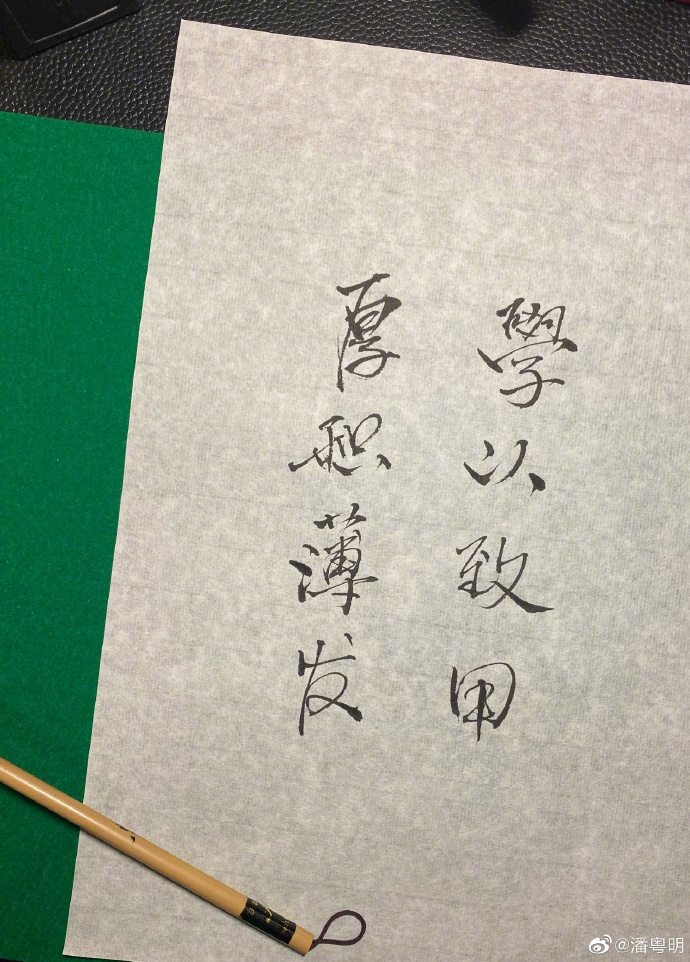 學以致用
厚积薄发
@潘粤明